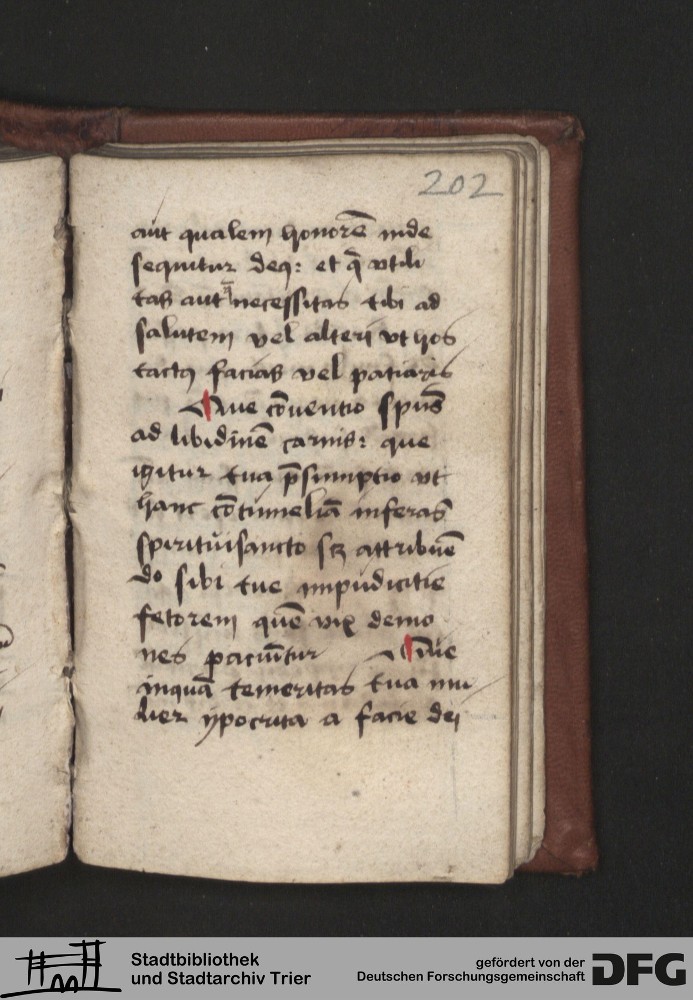 202
aut qualem honorē inde
sequitur deq; et q̄ vtili
tas aut necessitas tibi ad
salutem vel alteri vt hos
tactꝯ facias vel patiaris
Que cōuentio spūs
ad libidinē carnis: que
igitur tua p̄sumptio vt
hanc cōtumeliā inferas
spirituisancto scꝫ attribuē
do sibi tue impudicitie
fetorem quē vix demo
nes paciūtur Que
inquā temeritas tua mu
lier ypocrita a facie dei
Stadtbibliothek
und Stadtarchiv Trier
gefördert von der
Deutschen Forschungsgemeinschaft
DFG